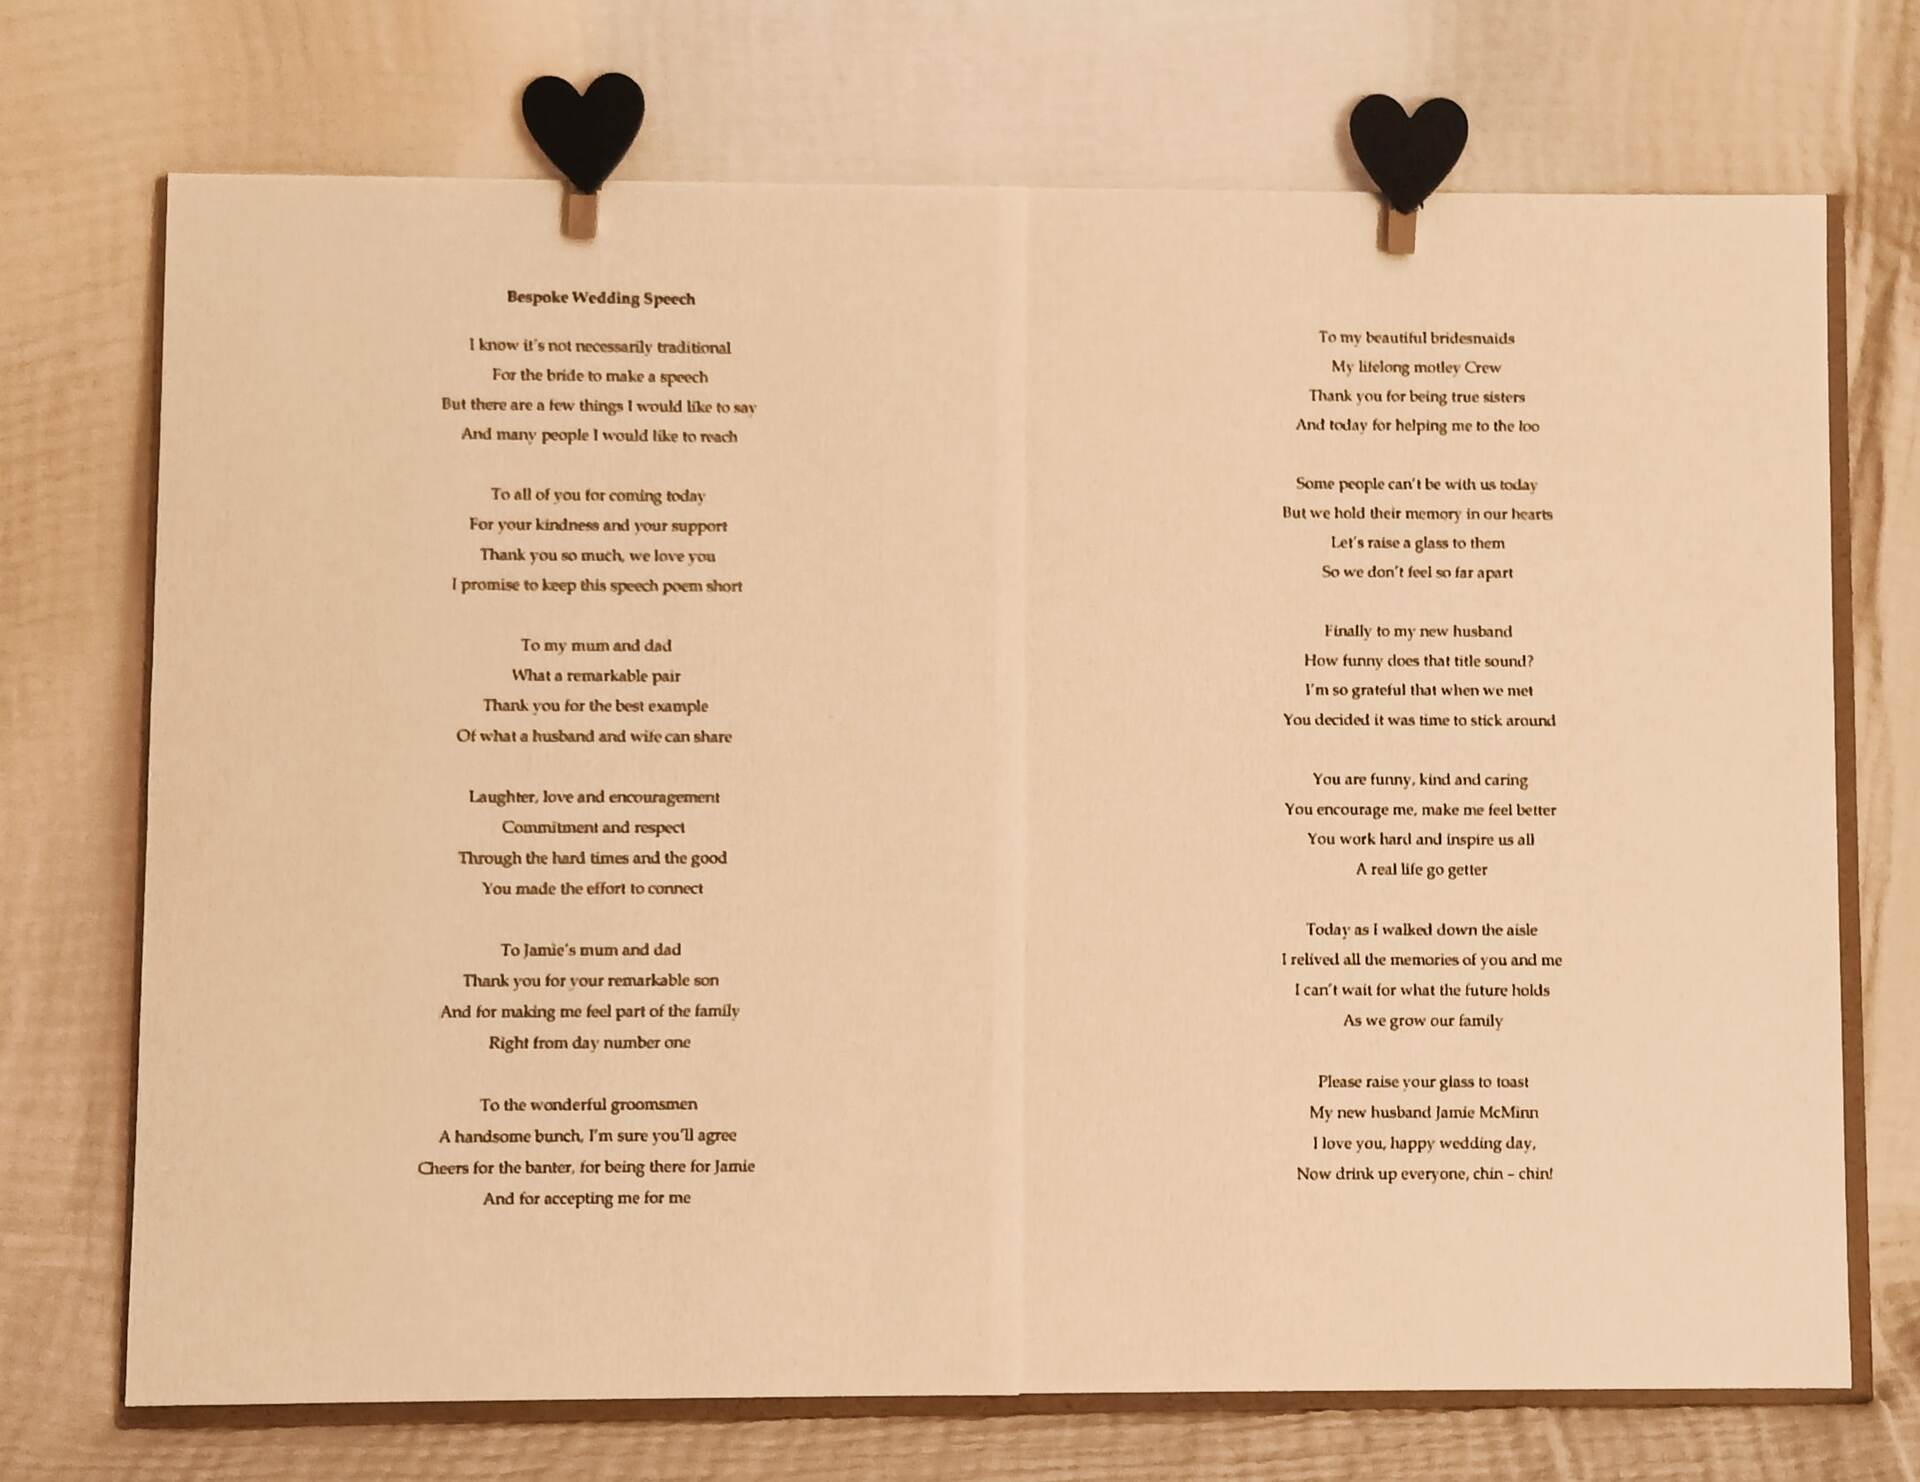 Bespoke Wedding Speech
I know it's not necessarily traditional
For the bride to make a speech
But there are a few things I would like to say
And many people I would like to reach
To all of you for coming today
For your kindness and your support
Thank you so much, we love you
I promise to keep this speech poem short
To my mum and dad
What a remarkable pair
Thank you for the best example
Of what a husband and wife can share
Laughter, love and encouragement
Commitment and respect
Through the hard times and the good
You made the effort to connect
To Jamie's mum and dad
Thank you for your remarkable son
And for making me feel part of the family
Right from day number one
To the wonderful groomsmen
A handsome bunch, I'm sure you'll agree
Cheers for the banter, for being there for Jamie
And for accepting me for me
To my beautiful bridesmaids
My lifelong motley Crew
Thank you for being true sisters
And today for helping me to the loo
Some people can't be with us today
But we hold their memory in our hearts
Let's raise a glass to them
So we don't feel so far apart
Finally to my new husband
How funny does that title sound?
I'm so grateful that when we met
You decided it was time to stick around
You are funny, kind and caring
You encourage me, make me feel better
You work hard and inspire us all
A real life go getter
Today as I walked down the aisle
I relived all the memories of you and me
I can't wait for what the future holds
As we grow our family
Please raise your glass to toast
My new husband Jamie McMinn
I love you, happy wedding day,
Now drink up everyone, chin – chin!